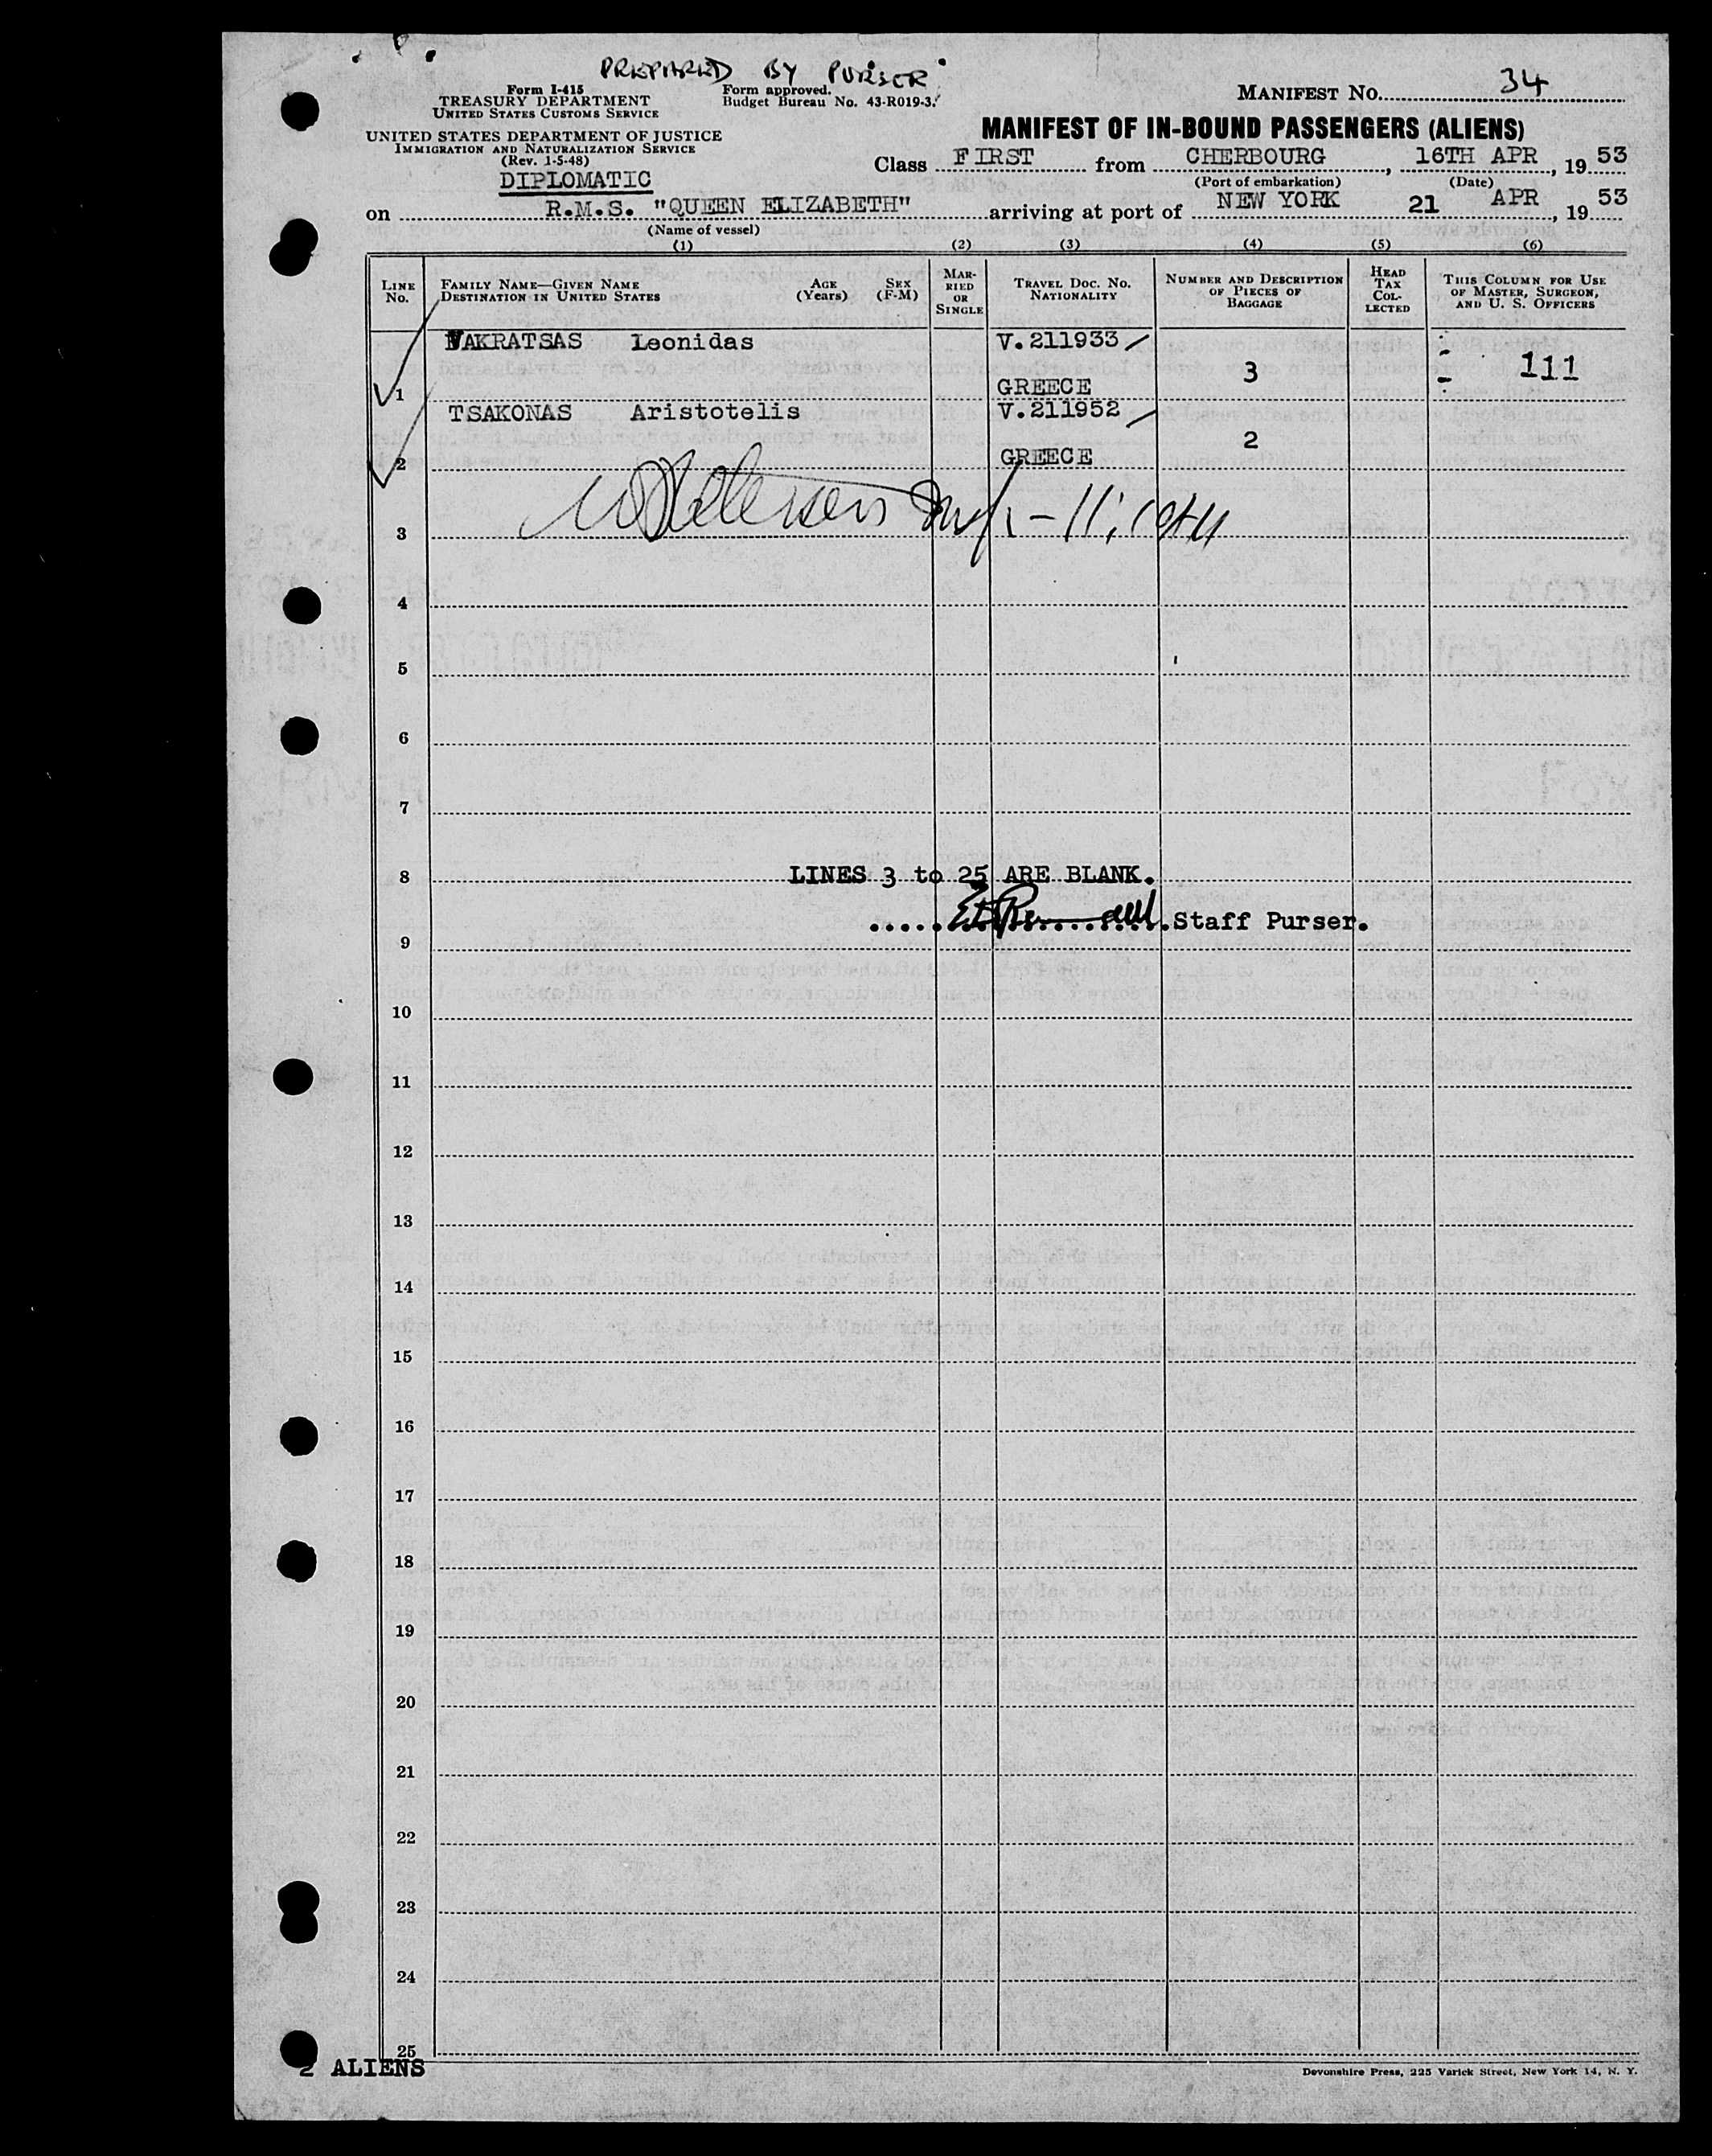 PREPARED BY PURSER
Form I-415
TREASURY DEPARTMENT
UNITED STATES CUSTOMS SERVICE
Form approved.
Budget Bureau No. 43-R019-3.
MANIFEST NO. 34
UNITED STATES DEPARTMENT OF JUSTICE
IMMIGRATION AND NATURALIZATION SERVICE
(Rev. 1-5-48)
DIPLOMATIC
MANIFEST OF IN-BOUND PASSENGERS (ALIENS)
Class FIRST from CHERBOURG, 16TH APR, 19 53
(Port of embarkation) (Date)
on R.M.S. "QUEEN ELIZABETH" arriving at port of NEW YORK 21 APR, 19 53
(Name of vessel)
(1) (2) (3) (4) (5) (6)
LINE NO. FAMILY NAME—GIVEN NAME DESTINATION IN UNITED STATES AGE (Years) SEX (F-M) MARRIED OR SINGLE TRAVEL DOC. NO. NATIONALITY NUMBER AND DESCRIPTION OF PIECES OF BAGGAGE HEAD TAX COLLECTED THIS COLUMN FOR USE OF MASTER, SURGEON, AND U. S. OFFICERS
VAKRATSAS Leonidas V.211933
1 GREECE 3 111
TSAKONAS Aristotelis V.211952
2 GREECE 2
3
4
5
6
7
8 LINES 3 to 25 ARE BLANK.
Staff Purser.
9
10
11
12
13
14
15
16
17
18
19
20
21
22
23
24
25
2 ALIENS
Devonshire Press, 225 Varick Street, New York 14, N. Y.